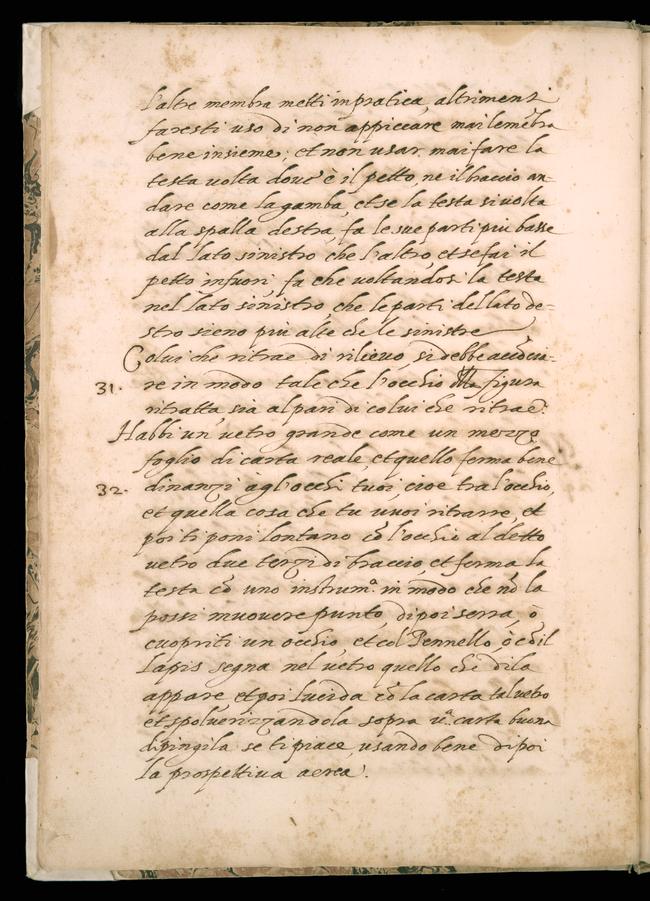 l'altre membra metti in pratica, altrimenti
faresti uso di non appiccare mai le mẽbra
bene insieme; et non usar mai fare la
testa volta dove è il petto, ne il braccio an-
dare come la gamba, et se la testa si volta
alla spalla destra, fa le sue parti più basse
dal lato sinistro che l'altro, et se fai il
petto infuori, fa che voltandosi la testa
nel lato sinistro, che le parti del lato de-
stro sieno più alte che le sinistre
Colui che ritrae di rilievo, si debbe acconcia-
31. re in modo tale che l'occhio della figura
ritratta, sia al pari di colui che ritrae.
Habbi un vetro grande come un mezzo
foglio di carta reale, et quello ferma bene
32. dinanzi agl'occhi tuoi, cioe tra l'occhio,
et quella cosa che tu vuoi ritrarre, et
poi ti poni lontano cõ l'occhio al detto
vetro due terzi di braccio et ferma la
testa cõ uno instrum.º in modo che nõ la
possi muovere punto, dipoi serra, ò
cuopriti un occhio, et col Pennello, ò cõ il
Lapis segna nel vetro quello che di la
appare, et poi lucida cõ la carta tal vetro
et spolverizzandola sopra uª carta buona
dipingila se ti piace, usando bene dipoi
la prospettiva aerea.